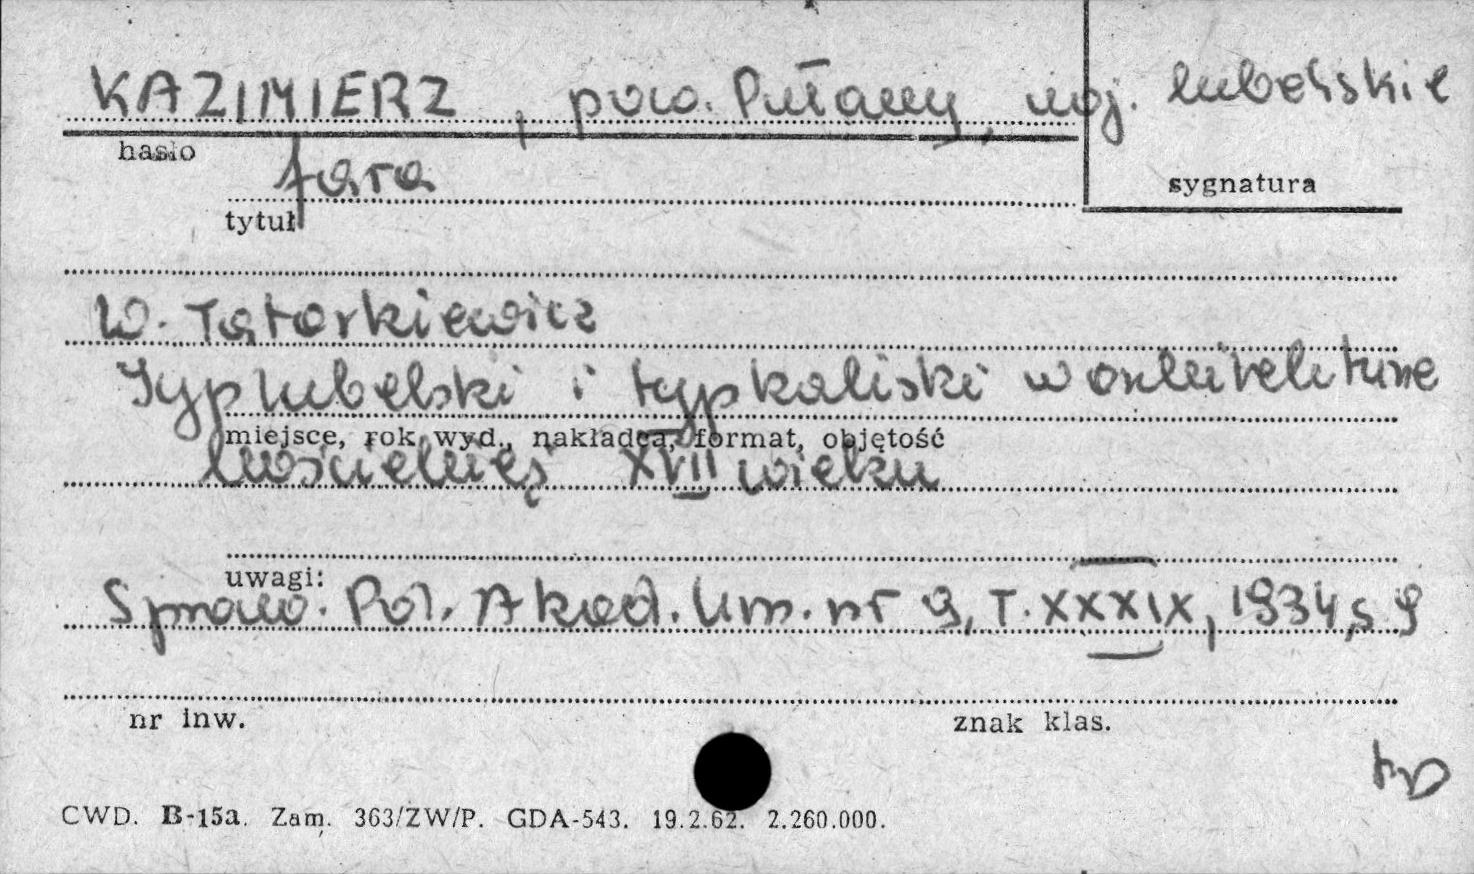 KAZIMIERZ, pow. Puławy, woj. lubelskie
hasło
fara
sygnatura
tytuł
W. Tatarkiewicz
Typ lubelski i typ kaliski w architekturze
miejsce, rok wyd., nakładca, format, objętość
kościelnej XVII wieku
uwagi:
Spraw. Pol. Akad. Um. nr 9, T. XXXIX, 1934, s 9
nr inw.
znak klas.
CWD. B-15a. Zam. 363/ZW/P. GDA-543. 19.2.62. 2.260.000.